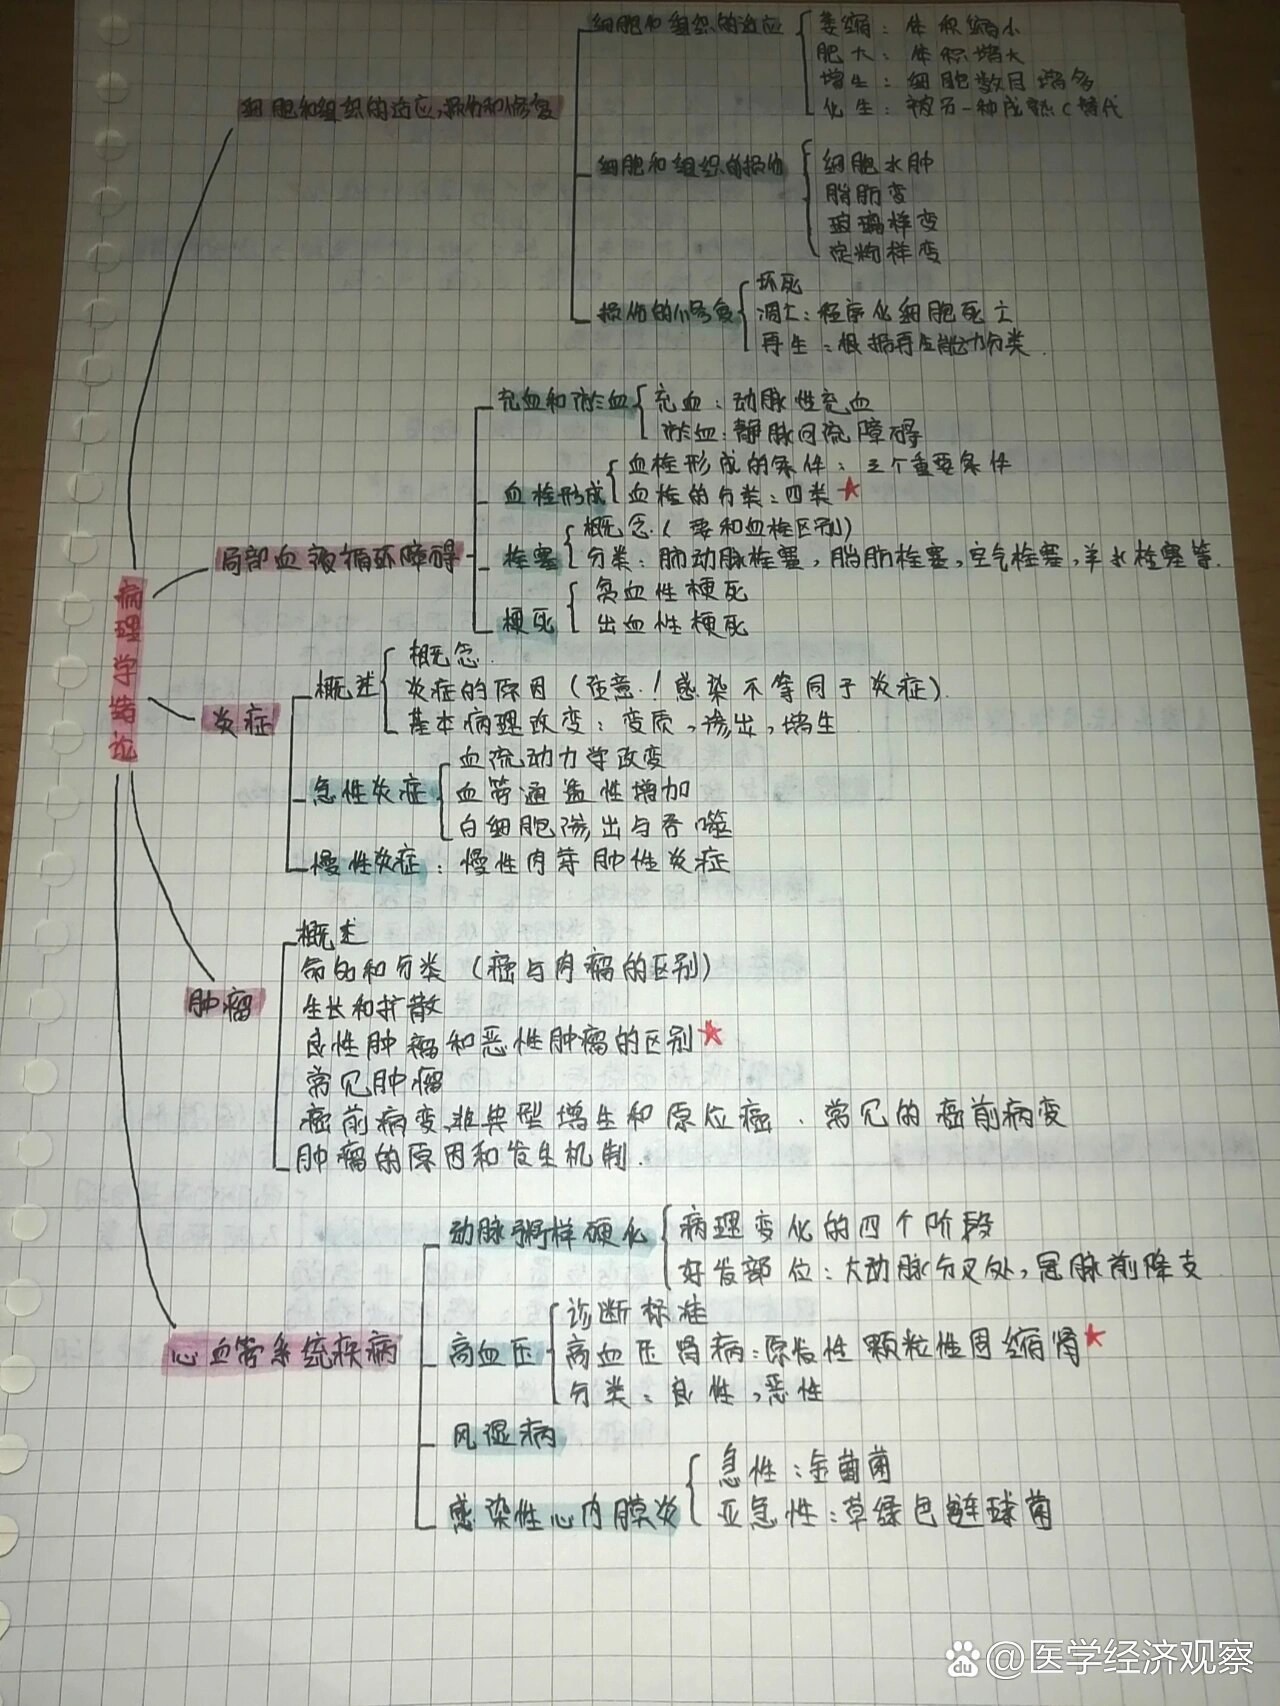 细胞和组织的适应
萎缩：体积缩小
肥大：体积增大
增生：细胞数目增多
化生：被另一种成熟C替代
细胞和组织的适应,损伤和修复
细胞和组织的损伤
细胞水肿
脂肪变
玻璃样变
淀粉样变
损伤的修复
坏死
凋亡：程序化细胞死亡
再生：根据再生能力分类
充血和淤血
充血：动脉性充血
淤血：静脉回流障碍
血栓形成
血栓形成的条件：三个重要条件
血栓的分类：四类★
局部血液循环障碍
栓塞
概念(要和血栓区别)
分类：肺动脉栓塞,脂肪栓塞,空气栓塞,羊水栓塞等.
梗死
贫血性梗死
出血性梗死
病理学绪论
炎症
概述
概念.
炎症的原因(注意！感染不等同于炎症)
基本病理改变：变质,渗出,增生
急性炎症
血流动力学改变
血管通透性增加
白细胞渗出与吞噬
慢性炎症：慢性肉芽肿性炎症
肿瘤
概述
命名和分类(癌与肉瘤的区别)
生长和扩散
良性肿瘤和恶性肿瘤的区别★
常见肿瘤
癌前病变,非典型增生和原位癌.常见的癌前病变
肿瘤的原因和发生机制.
动脉粥样硬化
病理变化的四个阶段
好发部位：大动脉分叉处,冠脉前降支
心血管系统疾病
高血压
诊断标准
高血压肾病：原发性颗粒性固缩肾★
分类：良性,恶性
风湿病
感染性心内膜炎
急性：金葡菌
亚急性：草绿色链球菌
@医学经济观察